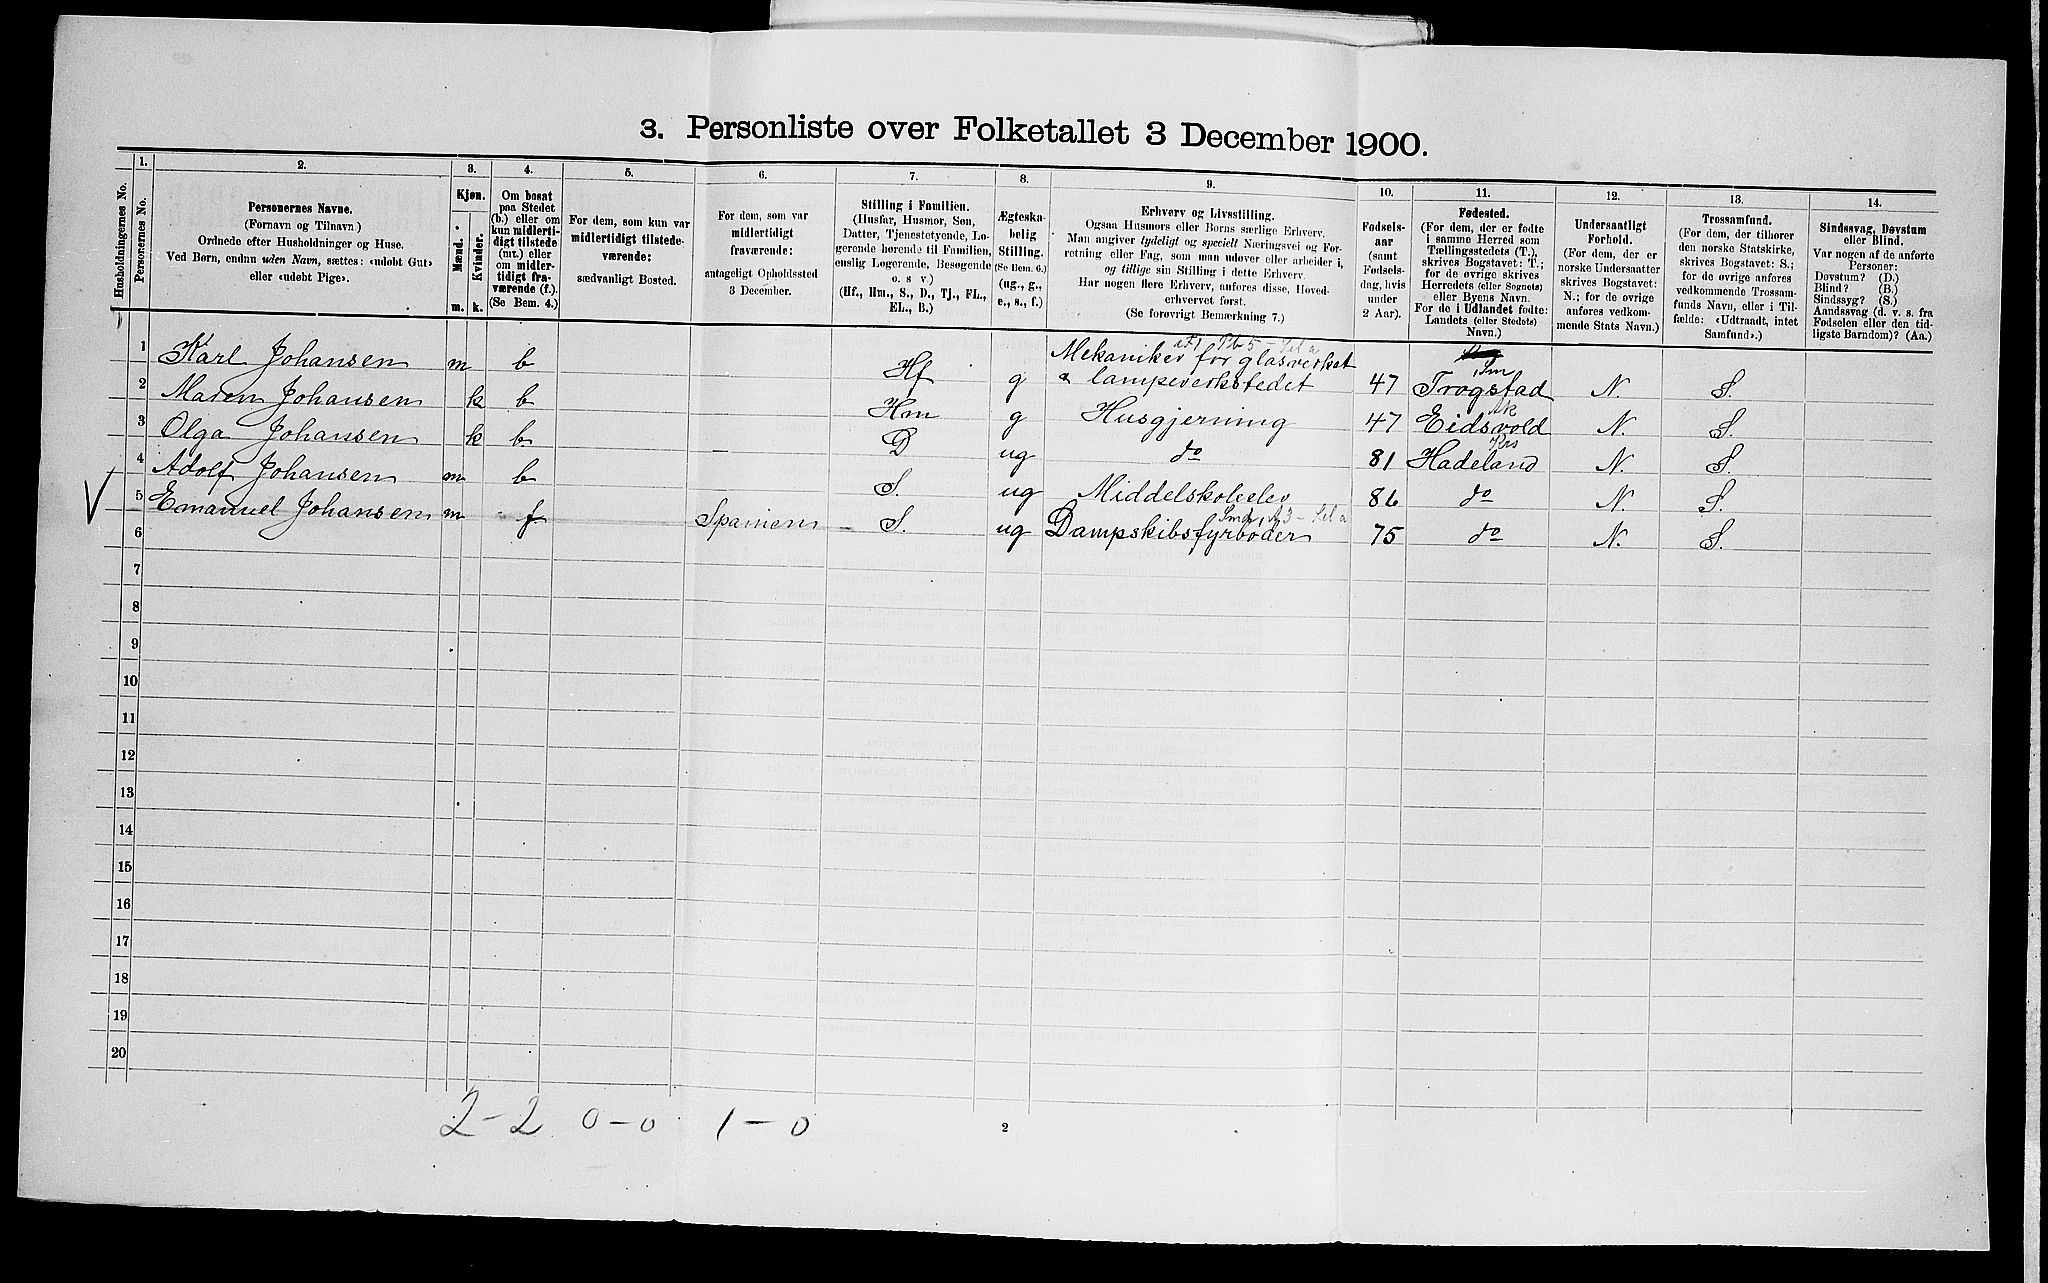 3. Personliste over Folketallet 3 December 1900.
Husholdningernes No.
1.
Personernes No.
2.
Personernes Navne.
(Fornavn og Tilnavn)
Ordnede efter Husholdninger og Huse.
Ved Børn, endnu uden Navn, sættes: «udøbt Gut»
eller «udøbt Pige».
3.
Kjøn.
Mænd.
Kvinder.
m. k.
4.
Om bosat
paa Stedet
(b.) eller om
kun midlerti-
digt tilstede
(mt.) eller
om midler-
tidigt fra-
værende (f.).
(Se Bem. 4.)
5.
For dem, som kun var
midlertidigt tilstede-
værende:
sædvanligt Bosted.
6.
For dem, som var
midlertidigt
fraværende:
antageligt Opholdssted
3 December.
7.
Stilling i Familien.
(Husfar, Husmor, Søn,
Datter, Tjenestetyende, Lo-
gerende hørende til Familien,
enslig Logerende, Besøgende
o. s v.)
(Hf., Hm., S., D., Tj., FL.,
EL., B.)
8.
Ægteska-
belig
Stilling.
(Se Bem. 6.)
(ug., g.,
e., s., f.)
9.
Erhverv og Livsstilling.
Ogsaa Husmors eller Børns særlige Erhverv.
Man angiver tydeligt og specielt Næringsvei og For-
retning eller Fag, som man udøver eller arbeider i,
og tillige sin Stilling i dette Erhverv.
Har nogen flere Erhverv, anføres disse, Hoved-
erhvervet først.
(Se forøvrigt Bemærkning 7.)
10.
Fødsels-
aar
(samt
Fødsels-
dag, hvis
under
2 Aar).
11.
Fødested.
(For dem, der er fødte
i samme Herred som
Tællingsstedets (T.),
skrives Bogstavet: T.;
for de øvrige skrives
Herredets (eller Sognets)
eller Byens Navn.
For de i Udlandet fødte:
Landets (eller Stedets)
Navn.)
12.
Undersaatligt
Forhold.
(For dem, der er
norske Undersaatter
skrives Bogstavet:
N.; for de øvrige
anføres vedkom-
mende Stats Navn.)
13.
Trossamfund.
(For dem, der tilhører
den norske Statskirke,
skrives Bogstavet: S.;
for de øvrige anføres
vedkommende Trossam-
funds Navn, eller i Til-
fælde: «Udtraadt, intet
Samfund».)
14.
Sindssvag, Døvstum
eller Blind.
Var nogen af de anførte
Personer:
Døvstum? (D.)
Blind? (B.)
Sindssyg? (S.)
Aandssvag (d. v. s. fra
Fødselen eller den tid-
ligste Barndom)? (Aa.)
1 Karl Johansen m b Hf g Mekaniker for glasverket
& lampeverkstedet 47 Sm Trøgstad N. S.
2 Maren Johansen k b Hm g Husgjerning 47 Ak Eidsvold N. S.
3 Olga Johansen k b D ug do 81 Krs Hadeland N. S.
4 Adolf Johansen m b S. ug Middelskoleelev 86 do N. S.
5 Emanuel Johansen m f Spanien S. ug Dampskibsfyrbøder 75 do N. S.
6
7
8
9
10
11
12
13
14
15
16
17
18
19
20
2-2 0-0 1-0
2